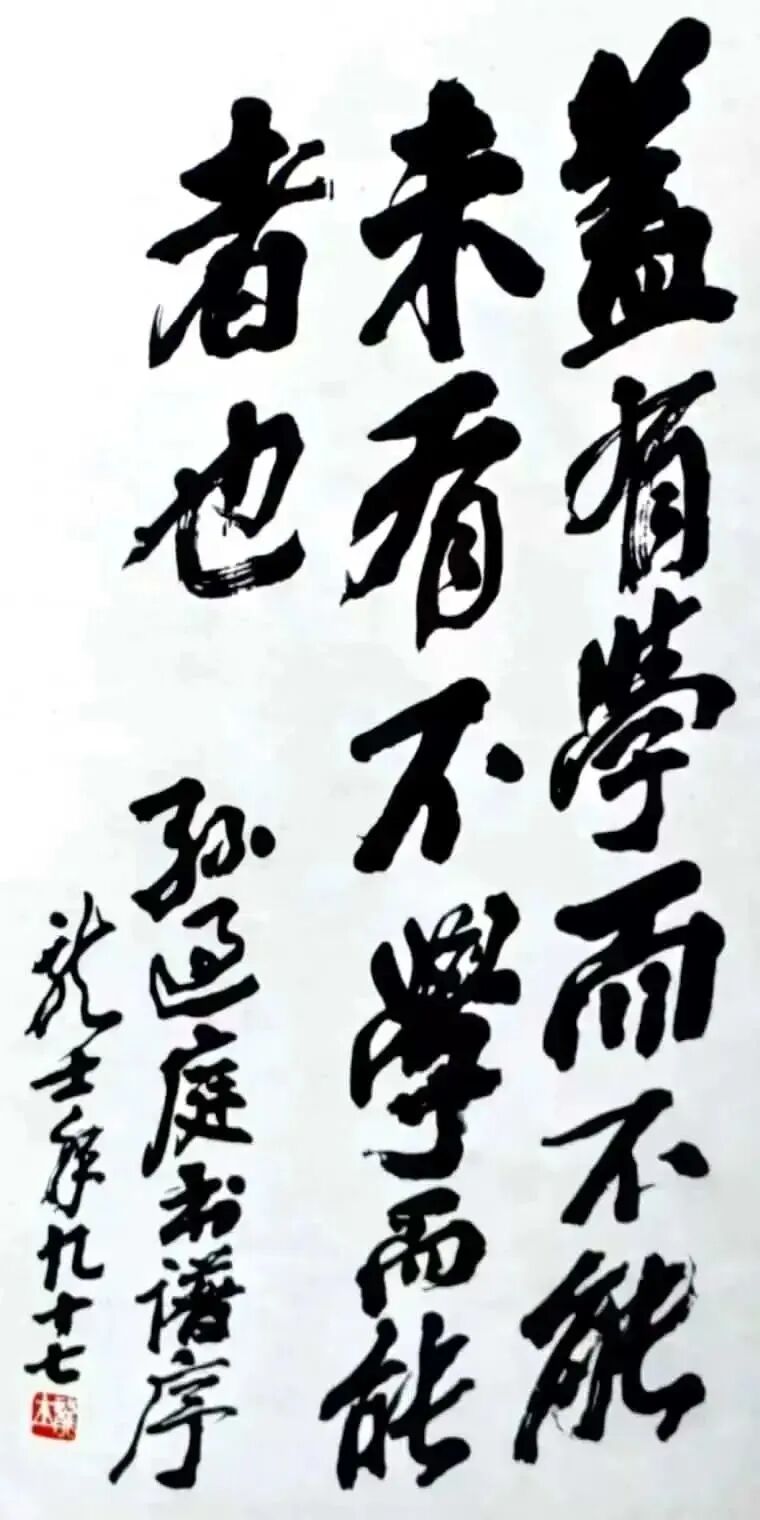 蓋有學而不能
未有不學而能
者也
孫過庭書譜序
龍士年九十七